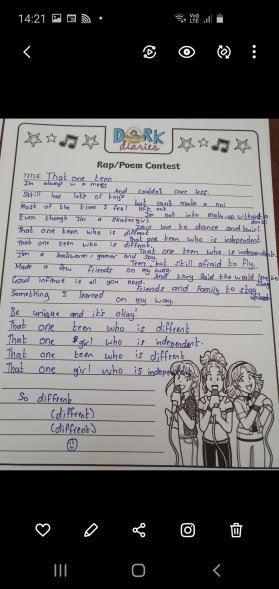 14:21
Vo))
LTE
DORK
diaries
Rap/Poem Contest
TITLE: That one teen
Im always in a mess
And couldn't care less.
Still has lots of toys
but can't make a noi
Most of the time I feel left out
Im not into make up without a doubt
Even though Im a skatergirl
I still love to dance and twirl
That one teen who is diffrent
That one teen who is independent
That one teen who is diffrent,
That one teen who is independent.
I'm a bookworm, gamer and spy
Teen but still afraid to fly.
Made a few friends on my way.
And they said the would
Good inflince is all you need.
Friends and Family to stay
Something I learned on my way.
Be unique and it's okay!
That one teen who is diffrent
That one girl who is independent.
That one teen who is diffrent
That one girl who is independent
So diffrent
(diffrent)
(diffrent)